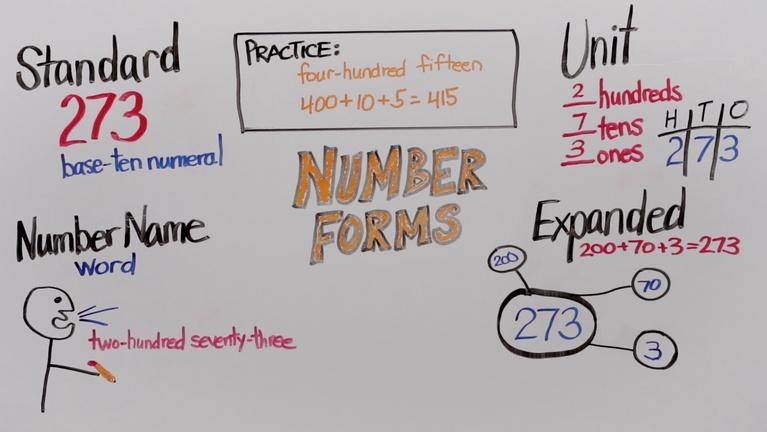 Standard
273
base-ten numeral
PRACTICE:
four-hundred fifteen
400+10+5=415
Unit
2 hundreds
7 tens
3 ones
H T O
2 7 3
NUMBER
FORMS
Number Name
word
two-hundred seventy-three
Expanded
200+70+3=273
200
70
273
3